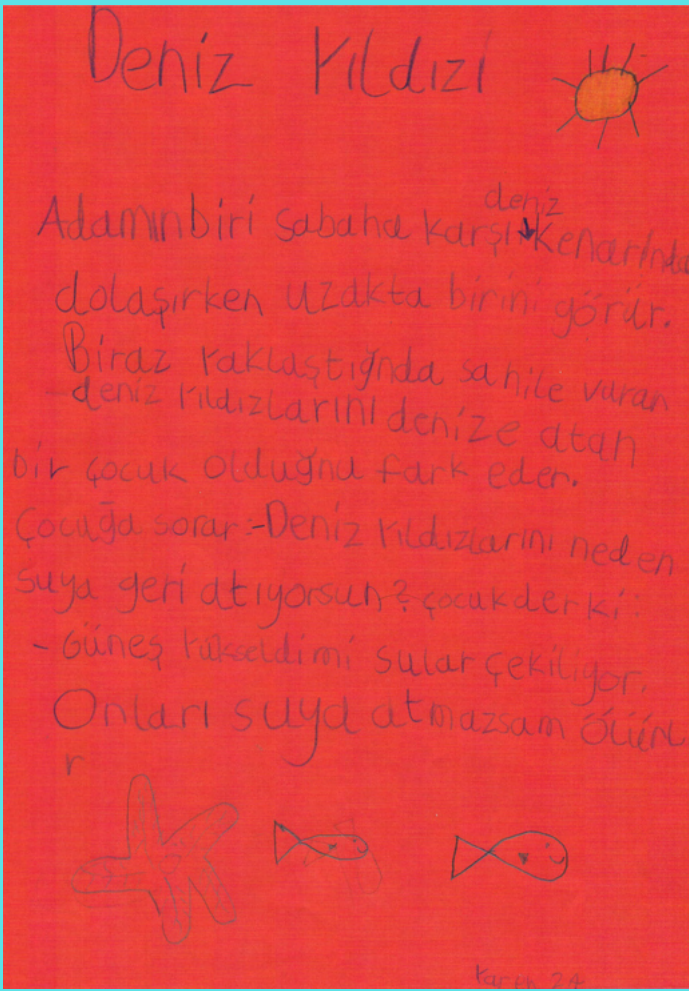 Deniz Yıldızi
deniz
Adamın biri sabaha karşı Kenarında
dolaşırken uzakta birini görür.
Biraz Yaklaştığnda sahile vuran
deniz Yıldızlarını denize atan
bir çocuk olduğna fark eder.
Çocuğa sorar:-Deniz Yıldızlarını neden
suya geri atıyorsun? çocuk der ki:
- Güneş Yükseldimi sular çekiliyor.
Onları suya atmazsam ölür
r